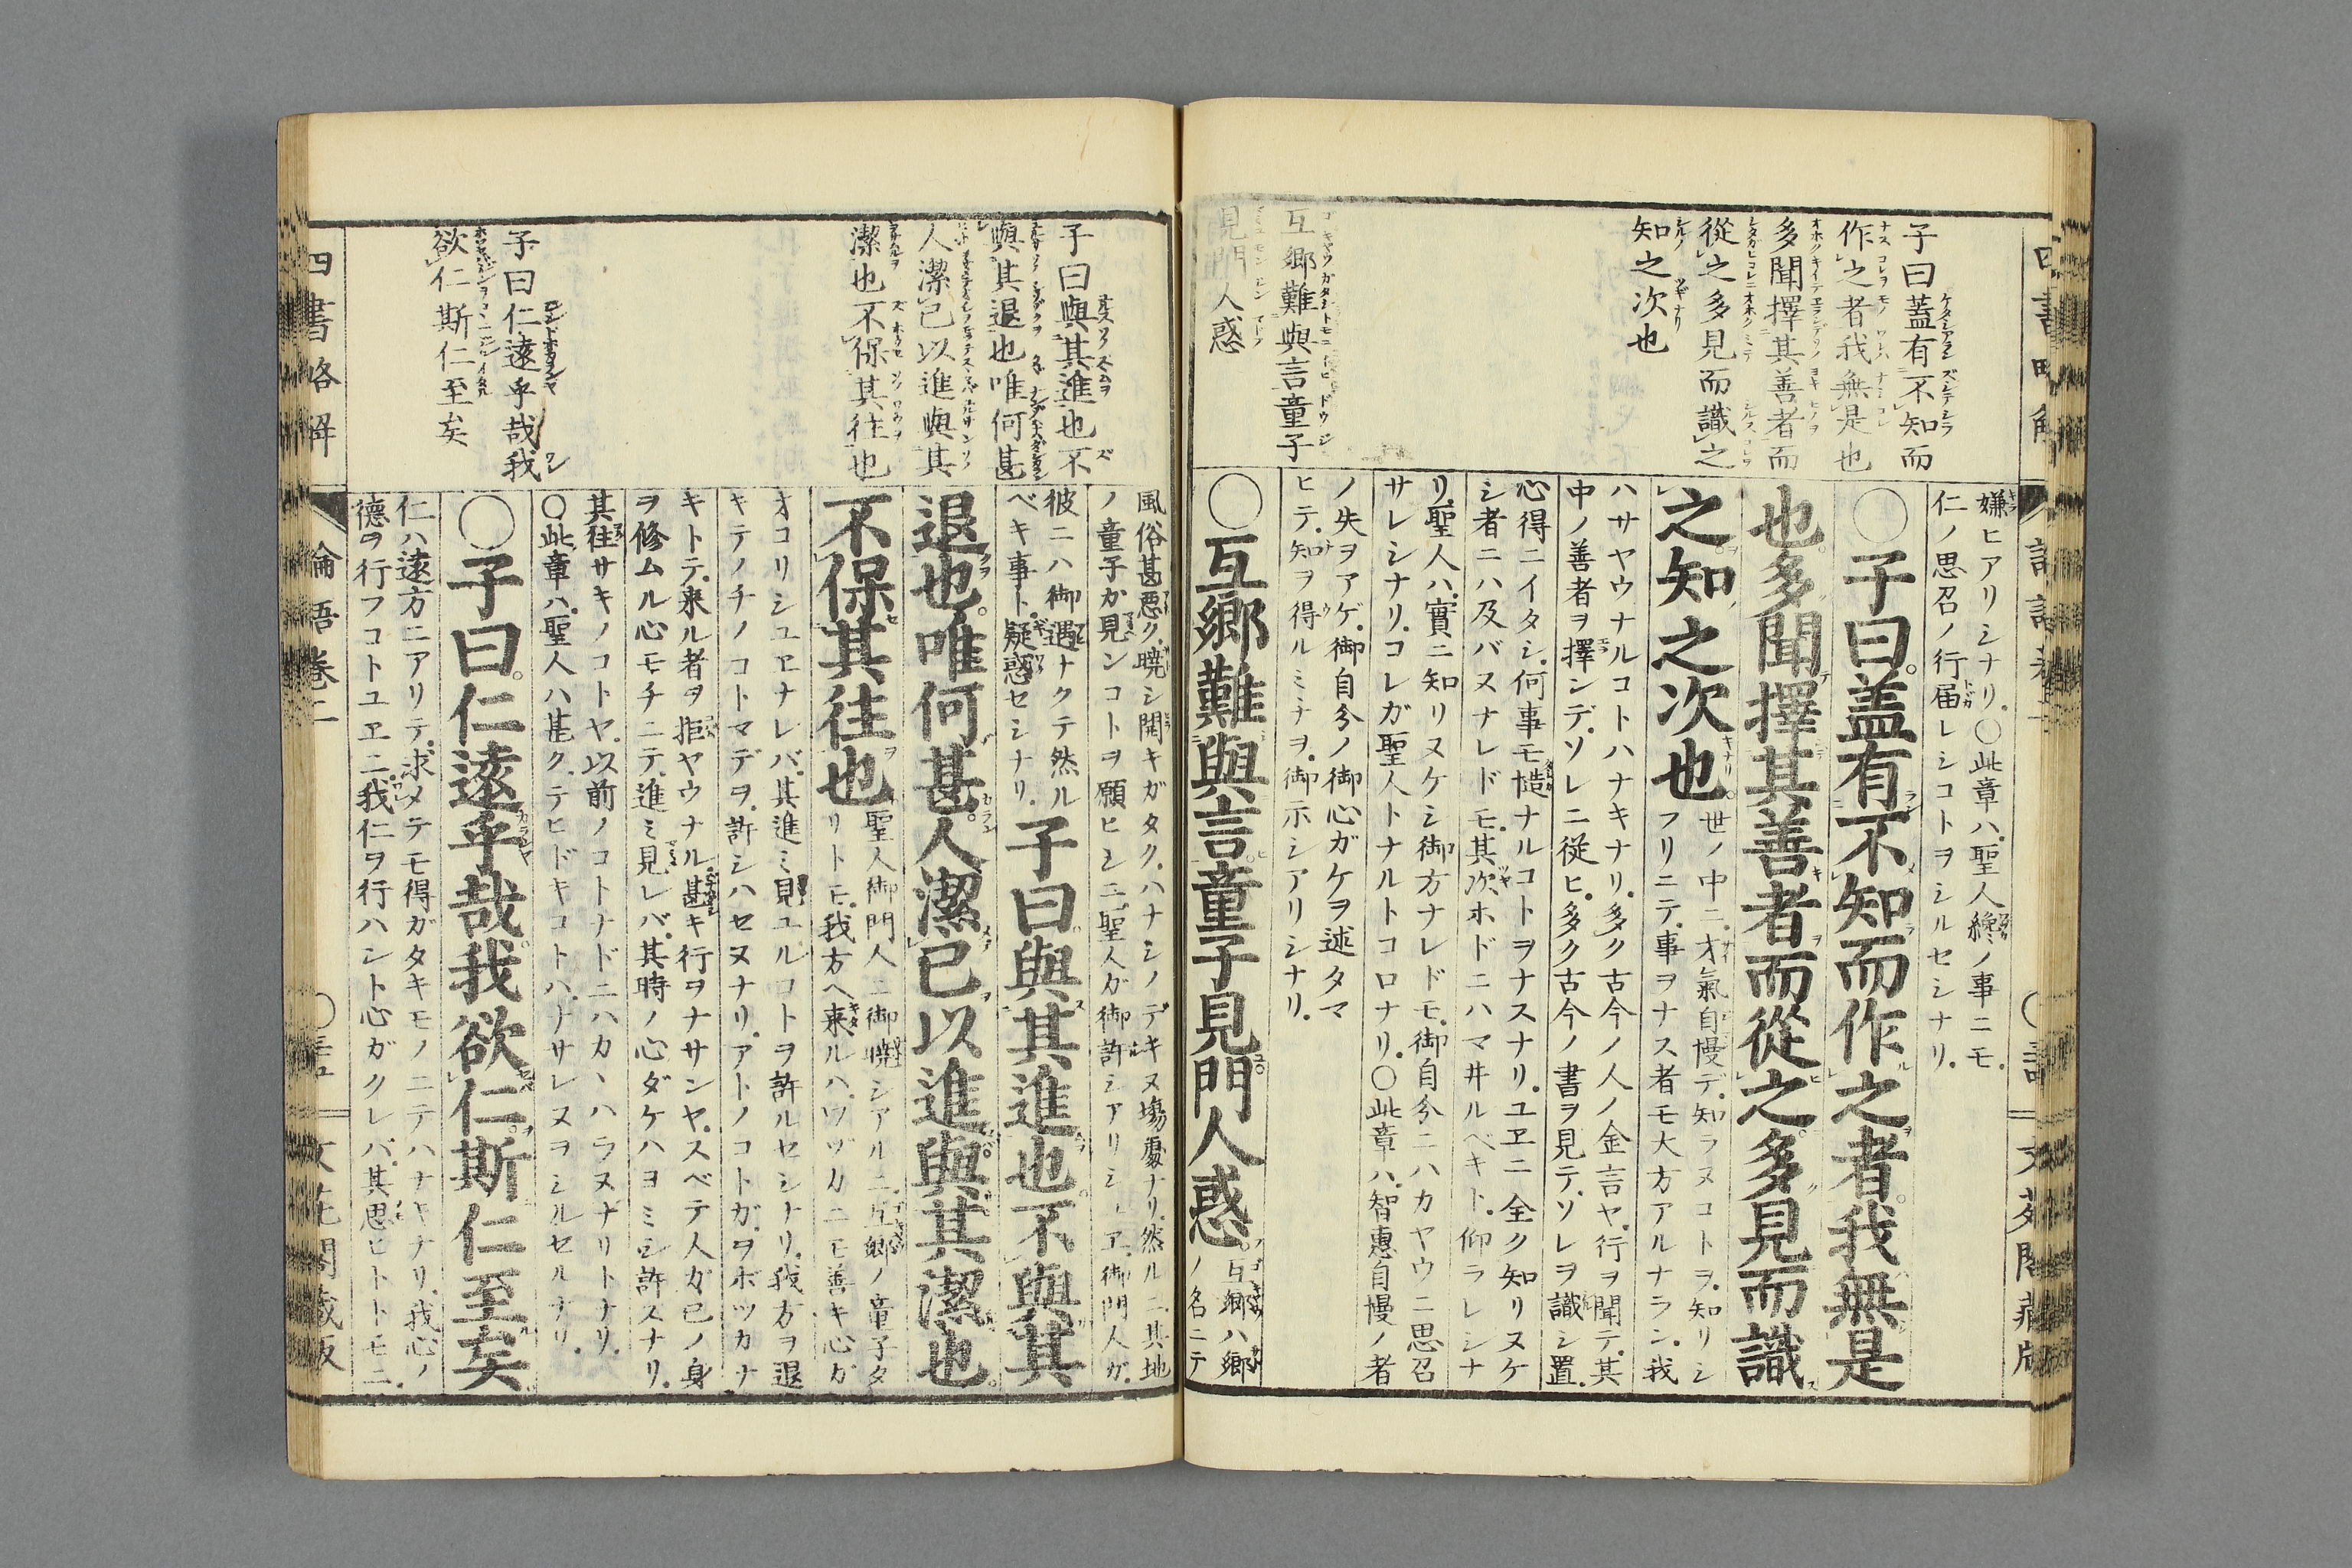 子曰蓋有不知而
作之者我無是也
多聞擇其善者而
從之多見而識之
知之次也
互郷難與言童子
見門人惑
嫌ヒアリシナリ○此章ハ聖人纔ノ事ニモ
仁ノ思召ノ行届レシコトヲシルセシナリ
○子曰蓋有不知而作之者我無是
也多聞擇其善者而從之多見而識
之知之次也
世ノ中ニ才氣自慢デ知ラヌコトヲ知リシ
フリニテ事ヲナス者モ大方アルナラン我
ハサヤウナルコトハナキナリ多ク古今ノ人ノ金言ヤ行ヲ聞テ其
中ノ善者ヲ擇ンデソレニ従ヒ多ク古今ノ書ヲ見テソレヲ識シ置
心得ニイタシ何事モ慥ナルコトヲナスナリユヱニ全ク知リヌケ
シ者ニハ及バヌナレドモ其次ホドニハマ井ルベキト仰ラレシナ
リ聖人ハ實ニ知リヌケシ御方ナレドモ御自分ニハカヤウニ思召
サレシナリコレガ聖人トナルトコロナリ○此章ハ智惠自慢ノ者
ノ失ヲアゲ御自分ノ御心ガケヲ述タマ
ヒテ知ヲ得ルミナヲ御示シアリシナリ
○互郷難與言童子見門人惑
互郷ハ郷
ノ名ニテ
子曰與其進也不
與其退也唯何甚
人潔己以進與其
潔也不保其往也
子曰仁遠乎哉我
欲仁斯仁至矣
風俗甚悪ク暁シ開キガタクハナシノデキヌ塲處ナリ然ルニ其地
ノ童子が見ンコトヲ願ヒシニ聖人ガ御許シアリシユヱ御門人ガ
彼ニハ御遇ナクテ然ル
ベキ事ト疑惑セシナリ
子曰與其進也不與其
退也唯何甚人潔己以進與其潔也
不保其往也
聖人御門人ニ御暁シアルニ互郷ノ童子タ
リトモ我方ヘ来ルハワヅカニモ善キ心ガ
オコリシユヱナレバ其進ミ見ユルコトヲ許ルセシナリ我方ヲ退
キテノチノコトマデヲ許シハセヌナリアトノコトガヲボツカナ
キトテ来ル者ヲ拒ヤウナル甚キ行ヲナサンヤスベテ人ガ己ノ身
ヲ修ムル心モチニテ進ミ見レバ其時ノ心ダケハヨミシ許スナリ
其往サキノコトヤ以前ノコトナドニハカヽハラヌナリトナリ
○此章ハ聖人ハ甚クテヒドキコトハナサレヌヲシルセルナリ
○子曰仁遠乎哉我欲仁斯仁至矣
仁ハ遠方ニアリテ求メテモ得ガタキモノニテハナキナリ我心ノ
德ヲ行フコトユヱニ我仁ヲ行ハント心ガクレバ其思ヒトトモニ
四書略解
論語巻二